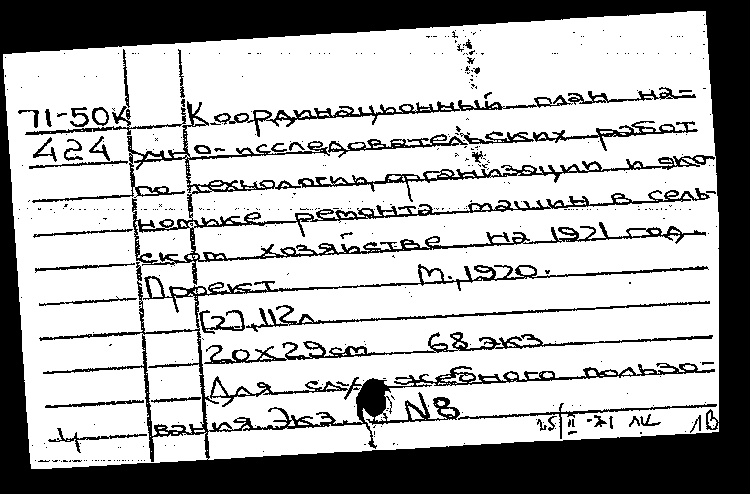 71-50к Координационный план на=
424 учно-исследовательских работ
по технологии, организации и эко
номике ремонта машин в сель-
ском хозяйстве на 1971 год.
Проект. М., 1970.
[2], 112л.
20х29см 68 экз
Для служебного пользо=
ч вания. Экз. N8
25/II-71 1В